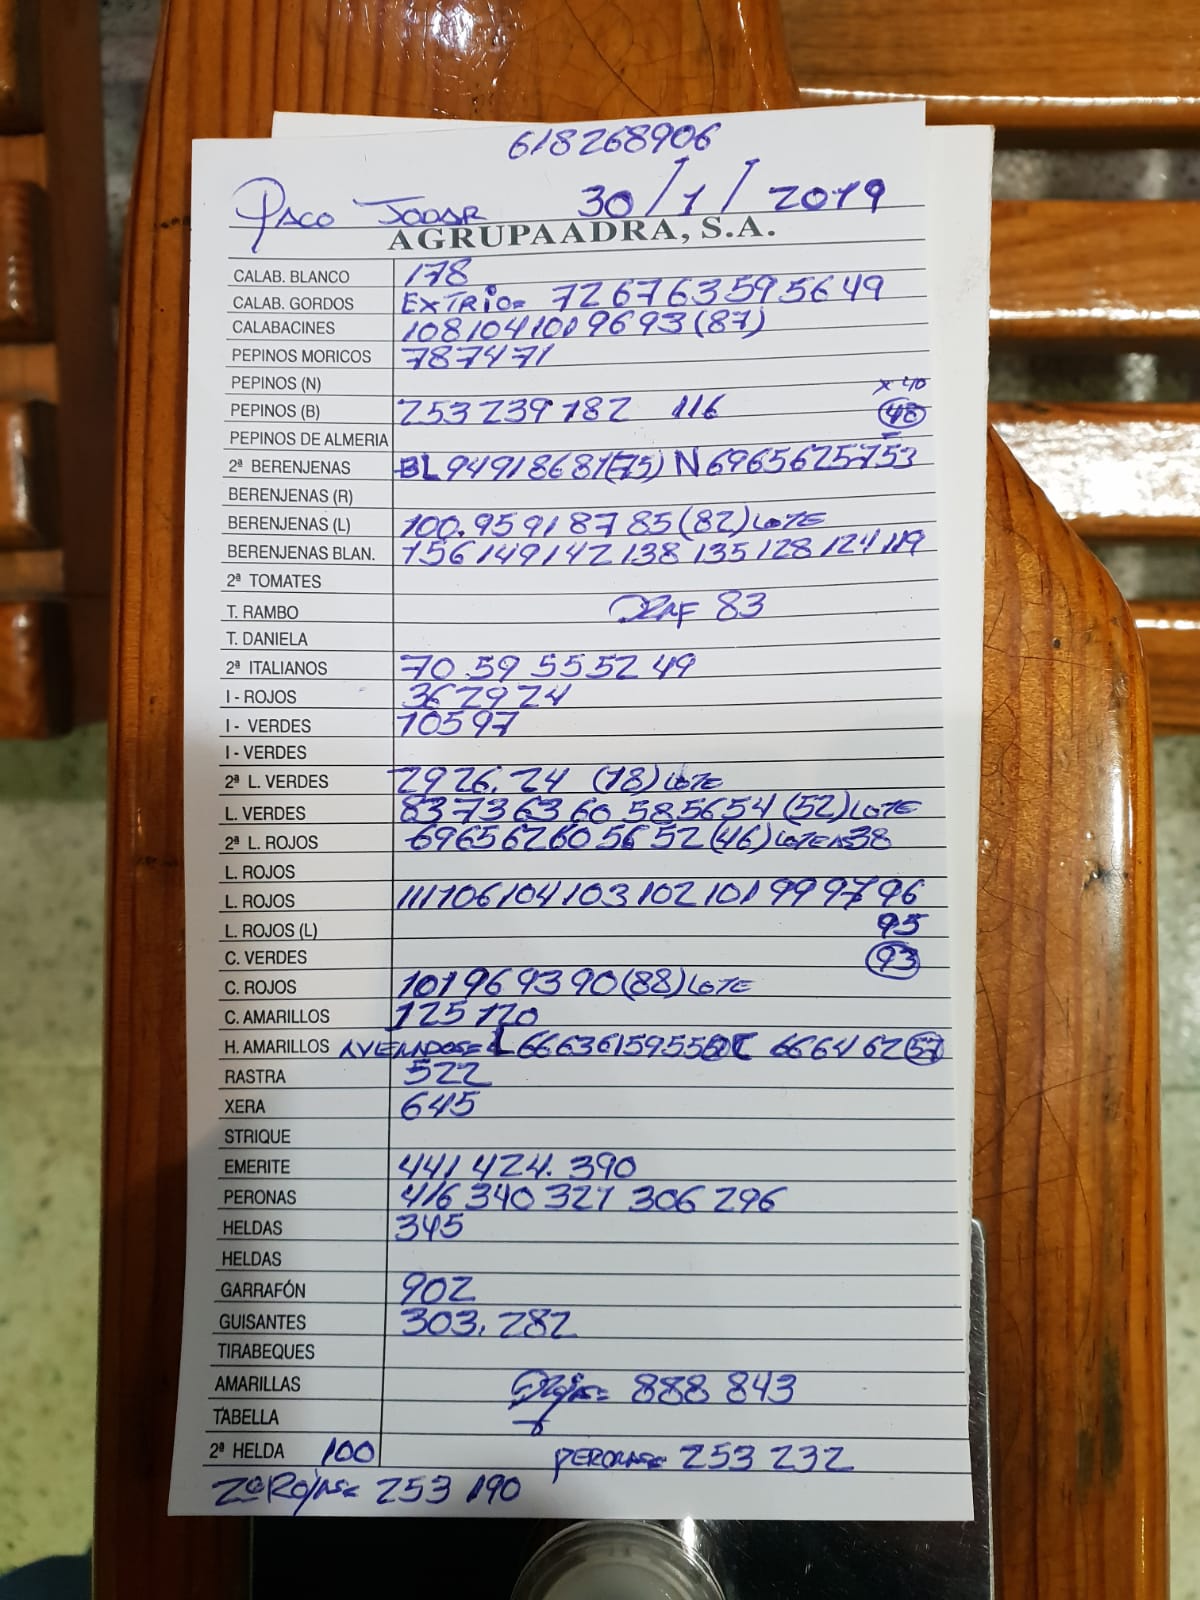 618268906
PACO JODAR 30/1/2019
AGRUPAADRA, S.A.
CALAB. BLANCO 178
CALAB. GORDOS EXTRIO= 72 67 63 59 56 49
CALABACINES 108 104 101 96 93 (87)
PEPINOS MORICOS 78 74 71
PEPINOS (N) x 40
PEPINOS (B) 253 239 182 116 48
PEPINOS DE ALMERIA
2ª BERENJENAS BL 94 91 86 81 (75) N 69 65 62 57 53
BERENJENAS (R)
BERENJENAS (L) 100. 95 91 87 85 (82) LOTE
BERENJENAS BLAN. 156 149 142 138 135 128 124 119
2ª TOMATES
T. RAMBO 83
T. DANIELA
2ª ITALIANOS 70 59 55 52 49
I - ROJOS 36 29 24
I - VERDES 105 97
I - VERDES
2ª L. VERDES 29 26. 24 (18) LOTE
L. VERDES 83 73 63 60 58 56 54 (52) LOTE
2ª L. ROJOS 69 65 62 60 56 52 (46) 38
L. ROJOS
L. ROJOS 111 106 104 103 102 101 99 97 96
L. ROJOS (L) 95
C. VERDES 93
C. ROJOS 101 96 93 90 (88) LOTE
C. AMARILLOS 125 120
H. AMARILLOS L 66 63 61 59 55 66 64 62 57
RASTRA 522
XERA 645
STRIQUE
EMERITE 441 424. 390
PERONAS 416 340 321 306 296
HELDAS 345
HELDAS
GARRAFÓN 902
GUISANTES 303. 282
TIRABEQUES
AMARILLAS 888 843
TABELLA
2ª HELDA 100 PERONAS= 253 232
2ª ROJAS= 253 190